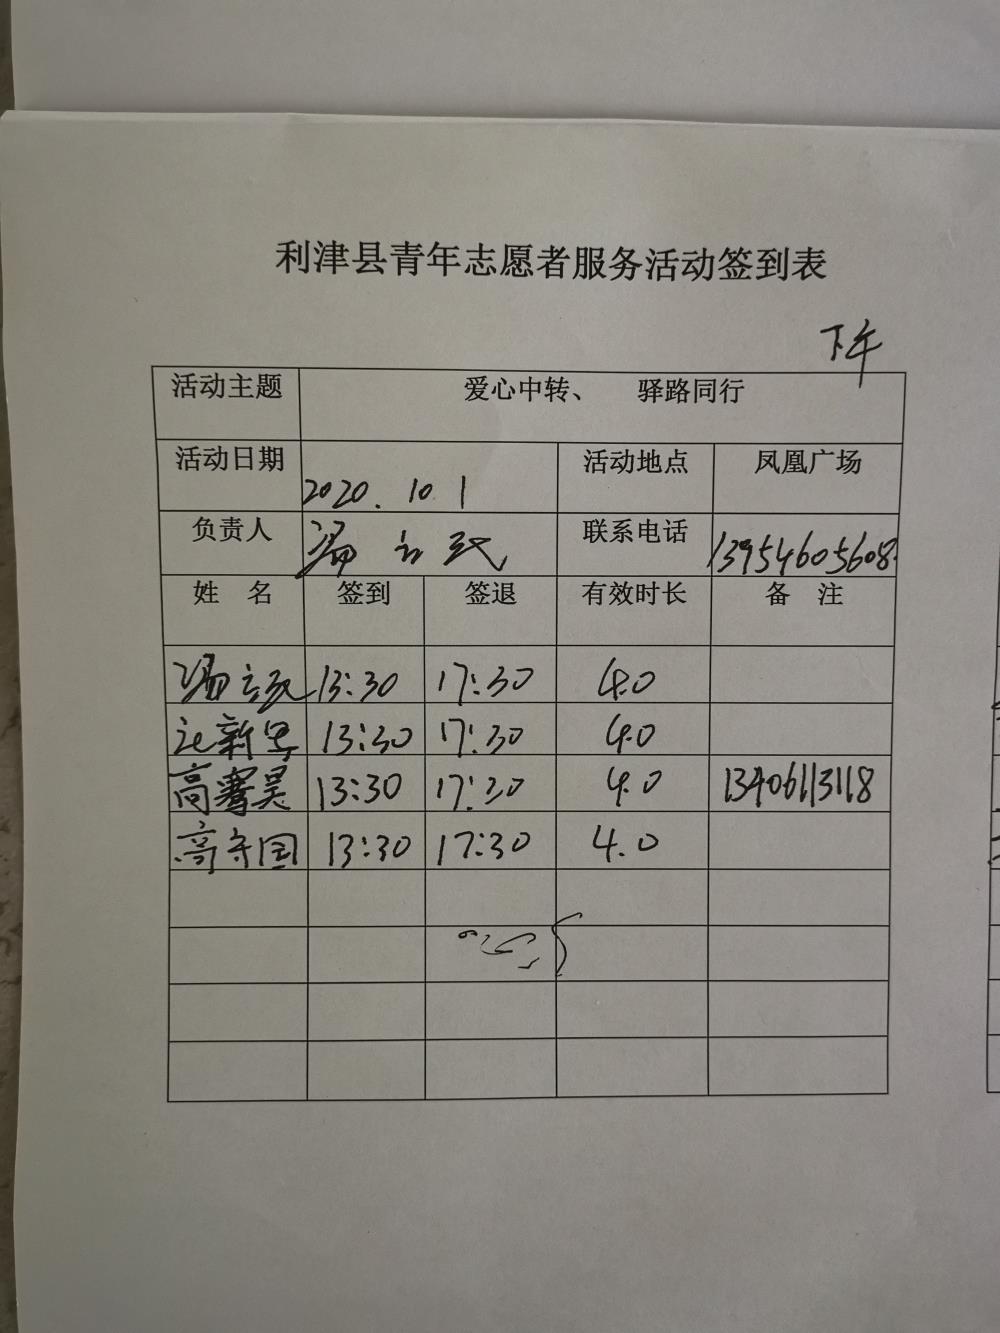 利津县青年志愿者服务活动签到表
下午
活动主题 爱心中转、 驿路同行
活动日期 2020.10 1 活动地点 凤凰广场
负责人 联系电话 13954605608
姓 名 签到 签退 有效时长 备 注
13:30 17:30 4.0
新 13:30 17:30 4.0
高骞昊 13:30 17:30 4.0 13406113118
高守国 13:30 17:30 4.0